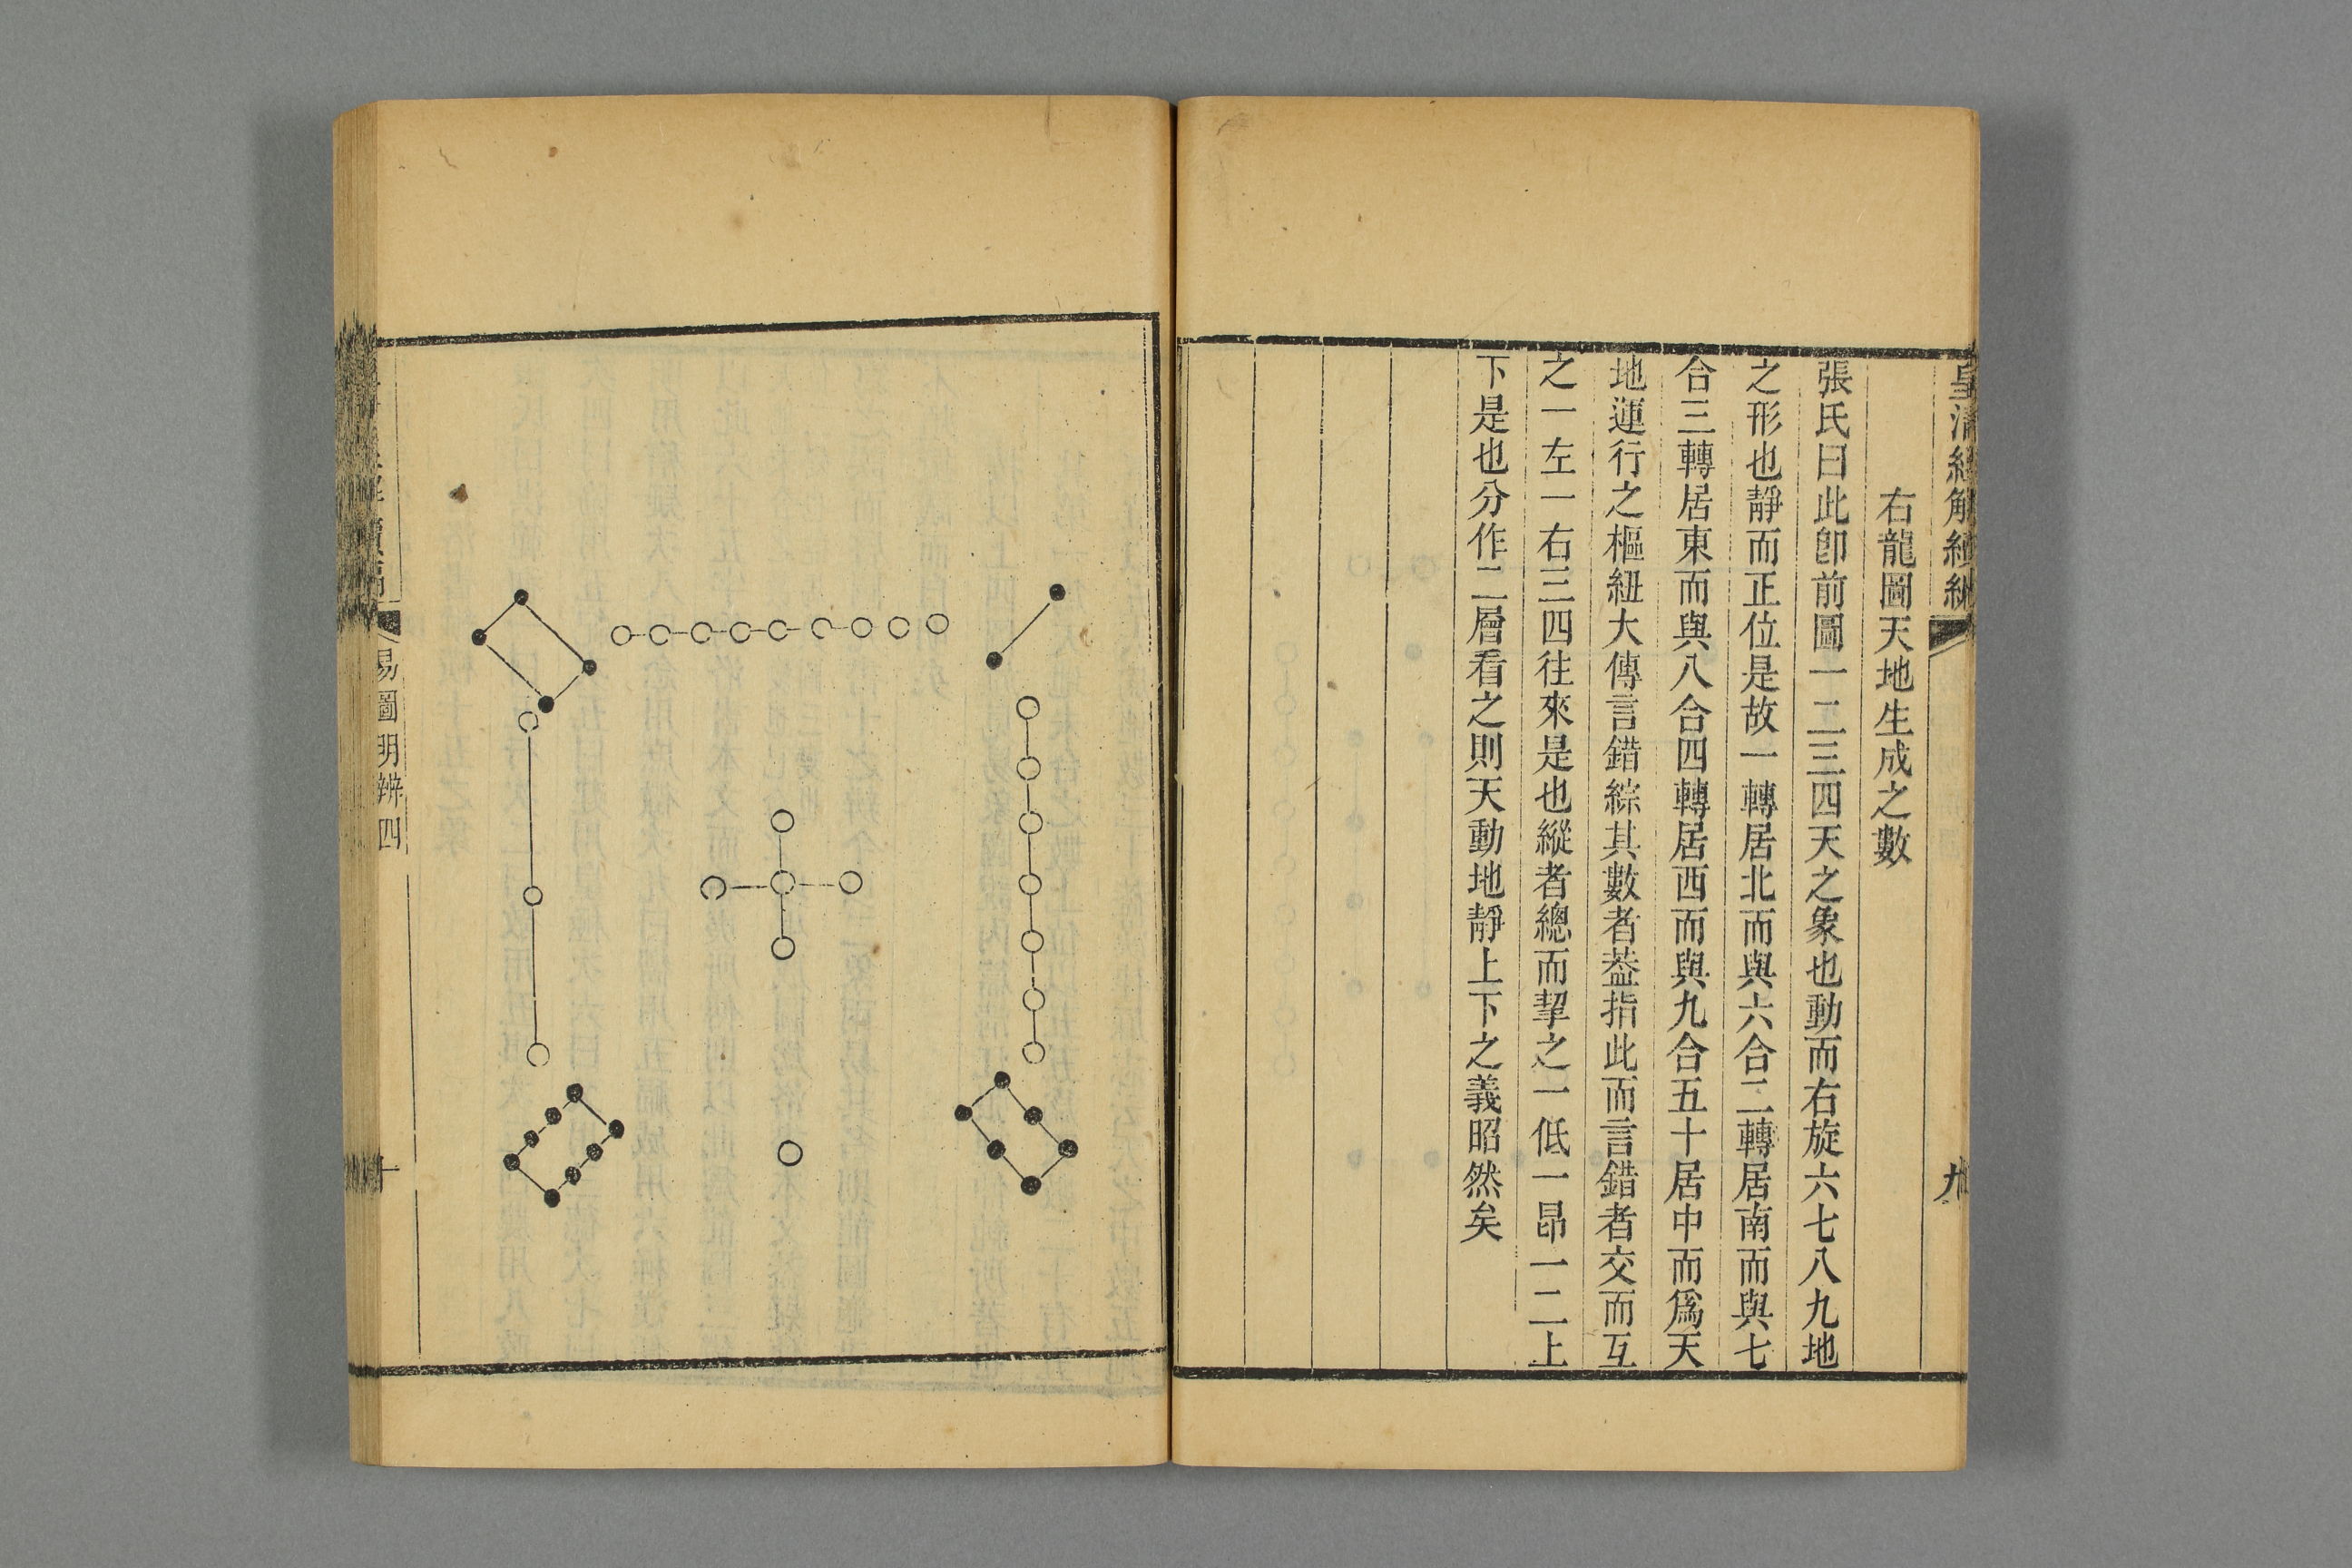 皇清經解續編
九
右龍圖天地生成之數
張氏曰此卽前圖一二三四天之象也動而右旋六七八九地
之形也靜而正位是故一轉居北而與六合二轉居南而與七
合三轉居東而與八合四轉居西而與九合五十居中而爲天
地運行之樞紐大傳言錯綜其數者葢指此而言錯者交而互
之一左一右三四往來是也縱者總而挈之一低一昂一二上
下是也分作二層看之則天動地靜上下之義昭然矣
易圖明辨四
十